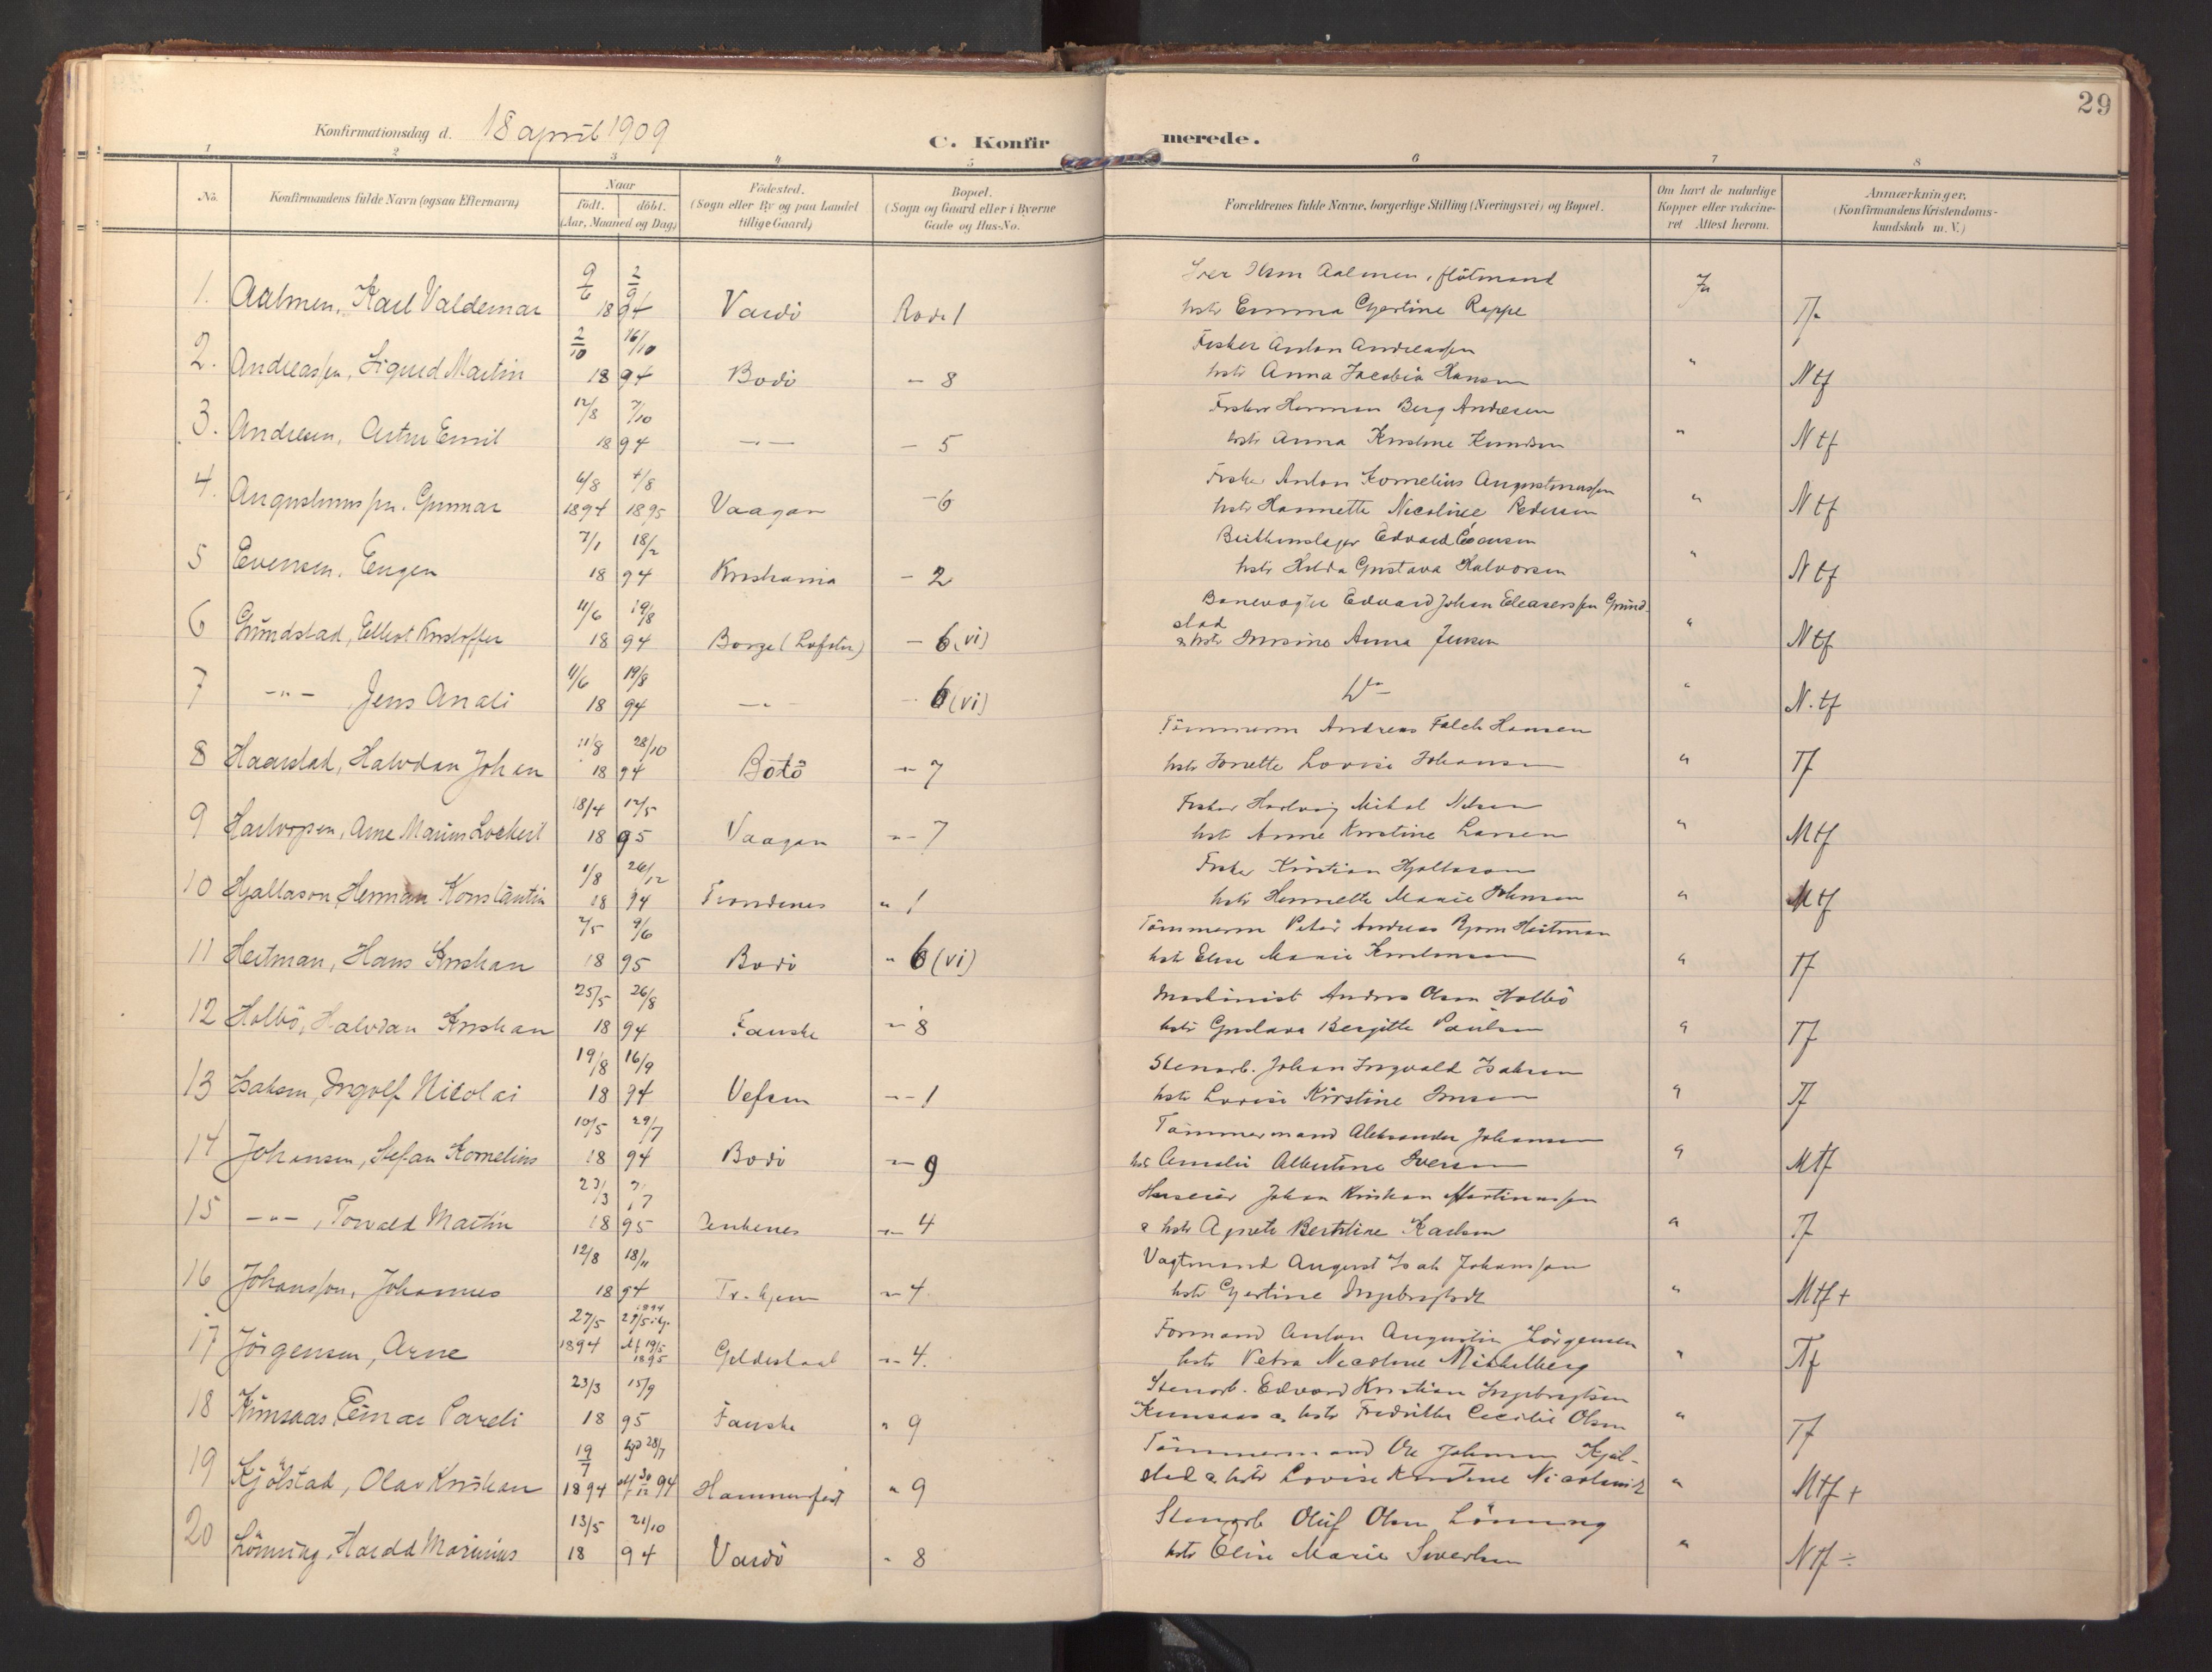 29
Konfirmationsdag d. 18 april 1909
C. Konfirmerede.
1 2 3 4 5 6 7 8
No. Konfirmandens fulde Navn (ogsaa Efternavn) Naar født. døbt. (Aar, Maaned og Dag) Fødested. (Sogn eller By og paa Landet tillige Gaard) Bopæl. (Sogn og Gaard eller i Byerne Gade og Hus-No. Forældrenes fulde Navne, borgerlige Stilling (Næringsvei) og Bopæl. Om havt de naturlige Kopper eller vakcineret Attest herom. Anmærkninger, (Konfirmandens Kristendomskundskab m. V.)
9/6 2/9 Iver Olsen Aalmen, flötmand Ja
1. Aalmen, Karl Valdemar 1894 Vardö Rode 1 hstr Emma Gjertine Rappe Tf
2/10 16/10 Fisker Anton Andreassen
2. Andreassen, Sigurd Martin 1894 Bodö - 8 hstr Anna Jacobia Hansen " Ntf
12/8 7/10 Fisker Herman Berg Andresen
3. Andresen, Artur Emil 1894 -"- - 5 hstr Anna Kristine Knudsen " Ntf
6/8 4/8 Fisker Anton Kornelius Augustinussen
4. Augustinussen, Gunnar 1894 1895 Vaagan - 6 hstr Hannette Nicoline Pedersen " Ntf
7/1 18/2 Edvard Evensen
5 Evensen, Eugen 1894 Kristiania - 2 hstr Hilda Gustava Halvorsen " Ntf
11/6 19/8 Banevogter Edvard Johan Eleasersen Gründ-
6 Gründstad, Ellert Kristoffer 1894 Borge (Lofoten) - 6 (vi) stad & hstr Anna Jensen " Ntf
11/6 19/8
7 -"- Jens Anali 1894 -"- - 6 (vi) Do " N.tf
11/8 28/10 Tömmerm Andreas Falch Hansen
8 Haarstad, Halvdan Johan 1894 Botö -"- 7 hstr Lovise Johansen " Tf
18/4 12/5 Fisker Hartvig Mikal Nilsen
9 Hartvigsen, Arne Marius Lockert 1895 Vaagan -"- 7 hstr Anne Kristine Larsen " Mtf
1/8 26/12 Fisker Kristian Hjaltason
10 Hjaltason, Herman Konstantin 1894 Trondenes " 1 hstr Marie Johnsen " Mtf
7/5 9/6 Tömmerm Peter Andreas Bjorn Heitman
11 Heitman, Hans Kristian 1895 Bodö " 6 (vi) hstr Elise Marie " Tf
25/5 26/8 Maskinist Anders Olsen Holbö
12 Holbö, Halvdan Kristian 1894 Fauske -"- 8 hstr Gustava Bergitte Paulsen " Tf
19/8 16/9 Stenarb. Johan Ingvald Isaksen
13 Isaksen, Ingolf Nikolai 1894 Vefsen -"- 1 hstr Lovise Kirstine " Tf
10/5 29/7 Tömmermand Aleksander Johansen
14 Johansen, Stefan Kornelius 1894 Bodö -"- 9 hstr Amalie Albertine Iversen " Mtf
23/3 7/7 Huseier Johan Kristian Martinussen
15 -"-, Torvald Martin 1895 -"- 4 & hstr Agnete Bertine Karlsen " Tf
12/8 18/11 Vagtmand August Isak Johansson
16 Johansson, Johannes 1894 Tr.hjem -"- 4 hstr Gjertine Ingebrigtsdt " Mtf +
27/5 1894 29/5 hj. Formand Anton Augustin Jörgensen
17 Jörgensen, Arne 1894 stf 19/5 1895 Gildeskaal -"- 4. hstr Petra Nicoline Mikkelberg " Tf
23/3 15/9 Stenarb. Edvard Kristian Ingebrigtsen
18 Kinsaas, Einar Pareli 1895 Fauske " 9 Kunsaas & hstr Fredrikke Cecilie Olsen " Tf
19/7 hjd 28/7 Tömmermand Ole Johnsen Kjöl-
19 Kjölstad, Olav Kristian 1894 stf 30/12 94 Hammerfest " 9 stad & hstr Lovise Kristine " Mtf +
13/5 21/10 Stenarb Oluf Olsen Lönning
20 Lönning, Harald Marinius 1894 Vardö " 8 hstr Eline Marie Sivertsen " Ntf ÷